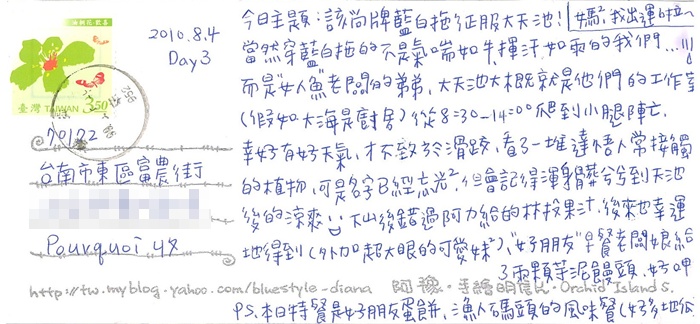 2010.8.4
Day 3
臺灣 TAIWAN 3.50
70122
台南市東區富農街
Pourquoi 收
今日主題：該尚牌藍白拖征服大天池！
媽，我出運啦
當然穿藍白拖的不是氣喘如牛揮汗如雨的我們...!!!
而是"女人魚"老闆的弟弟，大天池大概就是他們的工作室
(假如大海是廚房) 從8:30-14:00爬到小腿陣亡.
幸好有好天氣，才不致於滑跤，看了一堆達悟人常接觸
的植物，可是名字已經忘光，但會記得渾身髒兮兮到天池
後的涼爽 下山後錯過阿力給的林投果汁，後來也幸運
地得到(外加超大眼的可愛妹²)、"好朋友"早餐老闆娘給
3兩顆芋泥饅頭，好呷
http://tw.myblog.yahoo.com/bluestyle-diana 阿璣·手繪明信片·Orchid Islands.
PS.本日特餐是好朋友蛋餅，漁人碼頭的風味餐(好多地瓜